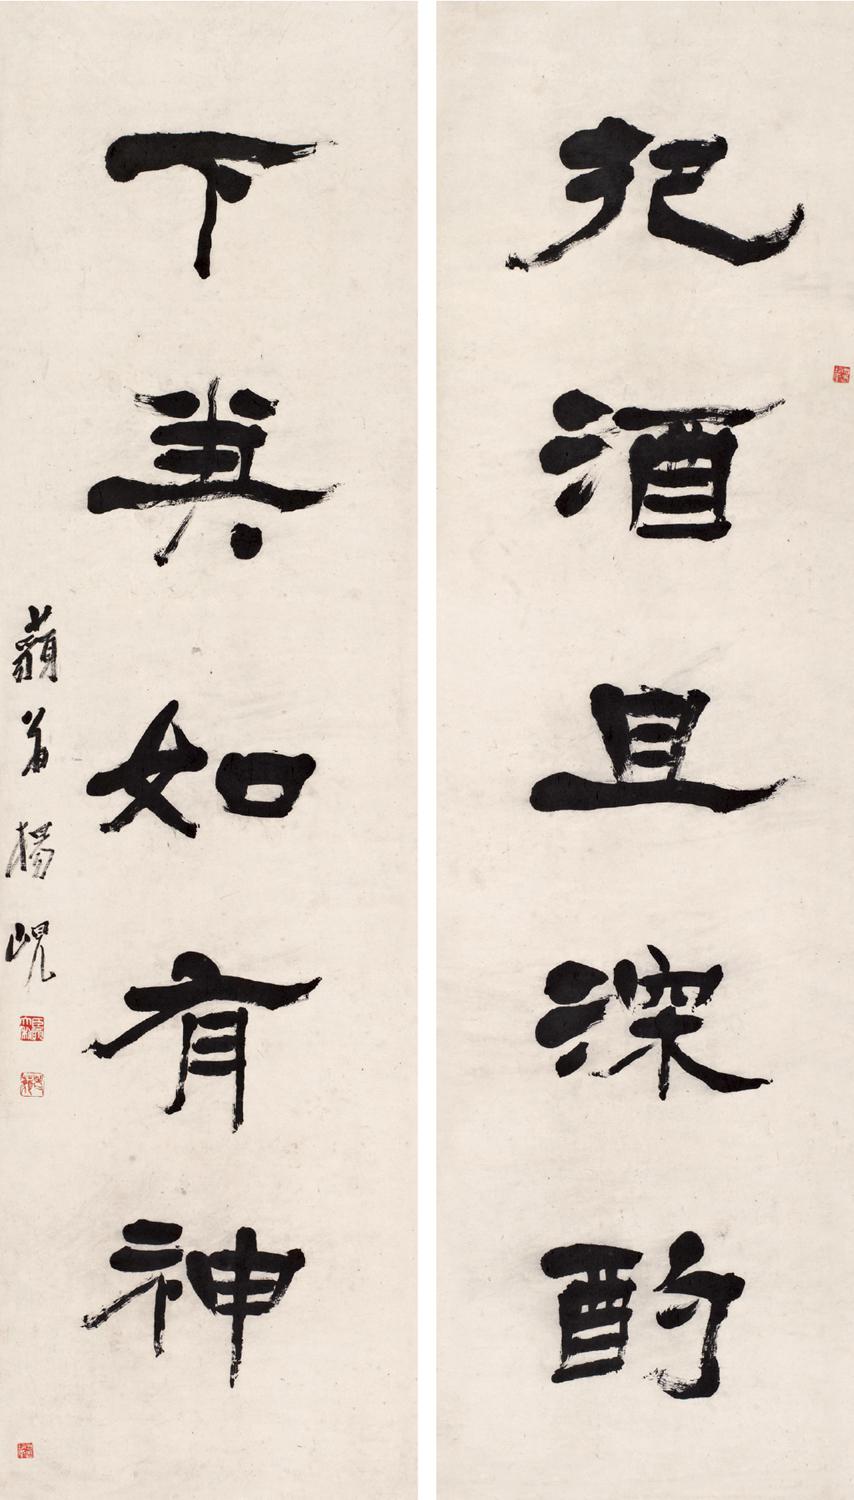 把酒且深酌
下筆如有神
藐翁楊峴